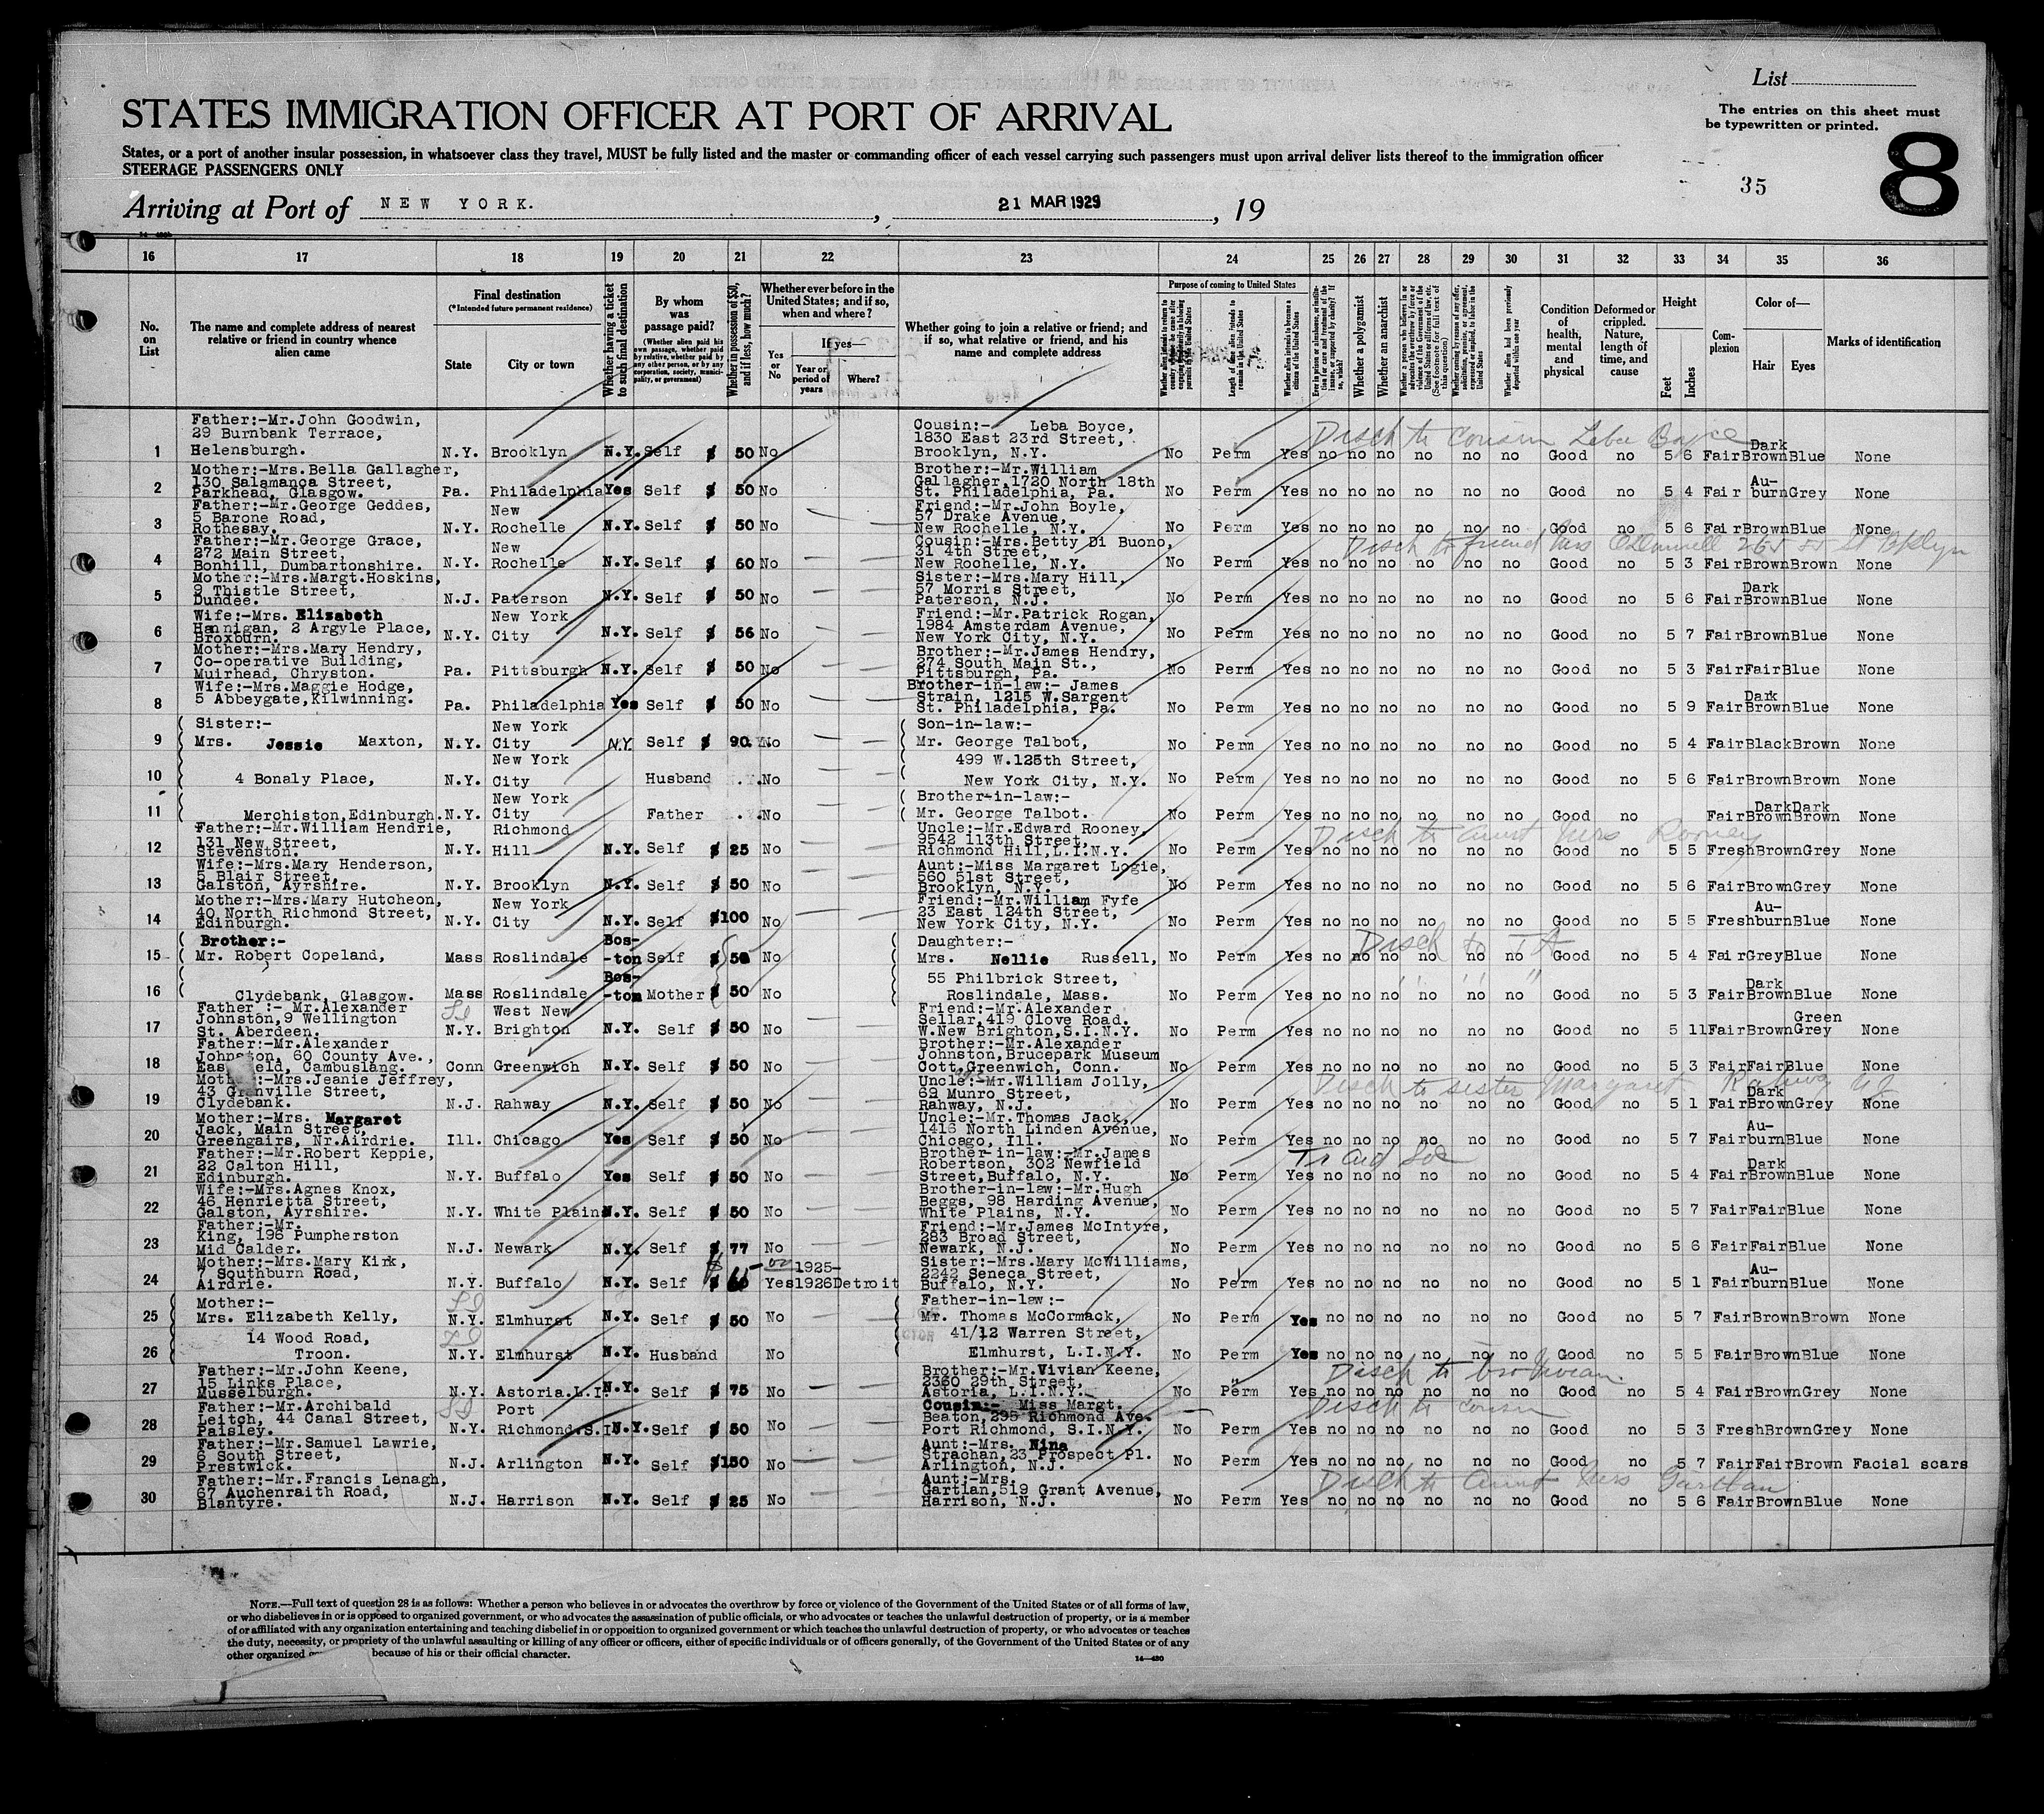 List
STATES IMMIGRATION OFFICER AT PORT OF ARRIVAL
The entries on this sheet must
be typewritten or printed.
States, or a port of another insular possession, in whatsoever class they travel, MUST be fully listed and the master or commanding officer of each vessel carrying such passengers must upon arrival deliver lists thereof to the immigration officer
STEERAGE PASSENGERS ONLY
35
8
Arriving at Port of NEW YORK. , 21 MAR 1929 , 19
16 17 18 19 20 21 22 23 24 25 26 27 28 29 30 31 32 33 34 35 36
No. on List
The name and complete address of nearest relative or friend in country whence alien came
Final destination
(*Intended future permanent residence)
State
City or town
Whether having a ticket to such final destination
By whom was passage paid?
(Whether alien paid his own passage, whether paid by relative, whether paid by any other person, or by any corporation, society, municipality, or government)
Whether in possession of $50, and if less, how much?
Whether ever before in the United States; and if so, when and where?
Yes or No
If yes—
Year or period of years
Where?
Whether going to join a relative or friend; and if so, what relative or friend, and his name and complete address
Purpose of coming to United States
Length of time alien intends to remain in the United States
Whether alien intends to become a citizen of the United States
Whether a polygamist
Whether an anarchist
Whether alien had been previously deported within one year
Condition of health, mental and physical
Deformed or crippled. Nature, length of time, and cause
Height
Feet
Inches
Complexion
Color of—
Hair
Eyes
Marks of identification
1 Father:-Mr.John Goodwin, 29 Burnbank Terrace, Helensburgh. N.Y. Brooklyn N.Y. Self $ 50 No Cousin:- Leba Boyce, 1830 East 23rd Street, Brooklyn, N.Y. No Perm Yes no no no no no no Good no 5 6 Fair Dark Brown Blue None
Disch to cousin Leba Boyce
2 Mother:-Mrs.Bella Gallagher, 130 Salamanca Street, Parkhead, Glasgow. Pa. Philadelphia Yes Self $ 50 No Brother:-Mr.William Gallagher,1720 North 18th St. Philadelphia, Pa. No Perm Yes no no no no no no Good no 5 4 Fair Au-burn Grey None
3 Father:-Mr.George Geddes, 5 Barone Road, Rothesay. N.Y. New Rochelle N.Y. Self $ 50 No Friend:-Mr.John Boyle, 57 Drake Avenue, New Rochelle, N.Y. No Perm Yes no no no no no no Good no 5 6 Fair Brown Blue None
4 Father:-Mr.George Grace, 272 Main Street, Bonhill, Dumbartonshire. N.Y. New Rochelle N.Y. Self $ 60 No Cousin:-Mrs.Betty Di Buono, 31 4th Street, New Rochelle, N.Y. No Perm Yes no no no no no no Good no 5 3 Fair Brown Brown None
Disch to friend Mrs O'Donnell 265 55 St Bklyn
5 Mother:-Mrs.Margt.Hoskins, 9 Thistle Street, Dundee. N.J. Paterson N.Y. Self $ 50 No Sister:-Mrs.Mary Hill, 57 Morris Street, Paterson, N.J. No Perm Yes no no no no no no Good no 5 6 Fair Dark Brown Blue None
6 Wife:-Mrs. Elizabeth Hannigan, 2 Argyle Place, Broxburn. N.Y. New York City N.Y. Self $ 56 No Friend:-Mr.Patrick Rogan, 1984 Amsterdam Avenue, New York City, N.Y. No Perm Yes no no no no no no Good no 5 7 Fair Brown Blue None
7 Mother:-Mrs.Mary Hendry, Co-operative Building, Muirhead, Chryston. Pa. Pittsburgh N.Y. Self $ 50 No Brother:-Mr.James Hendry, 274 South Main St., Pittsburgh, Pa. No Perm Yes no no no no no no Good no 5 3 Fair Fair Blue None
8 Wife:-Mrs.Maggie Hodge, 5 Abbeygate,Kilwinning. Pa. Philadelphia Yes Self $ 50 No Brother-in-law:- James Strain, 1215 W.Sargent St. Philadelphia, Pa. No Perm Yes no no no no no no Good no 5 9 Fair Dark Brown Blue None
9 Sister:- Mrs. Jessie Maxton, N.Y. New York City N.Y. Self $ 90 No Son-in-law:- Mr. George Talbot, No Perm Yes no no no no no no Good no 5 4 Fair Black Brown None
10 4 Bonaly Place, N.Y. New York City Husband No 499 W.125th Street, New York City, N.Y. No Perm Yes no no no no no no Good no 5 6 Fair Brown Brown None
11 Merchiston,Edinburgh. N.Y. New York City Father No Brother-in-law:- Mr. George Talbot. No Perm Yes no no no no no no Good no Fair Dark Brown Dark Brown None
12 Father:-Mr.William Hendrie, 131 New Street, Stevenston. N.Y. Richmond Hill N.Y. Self $ 25 No Uncle:-Mr.Edward Rooney, 9542 113th Street, Richmond Hill,L.I.N.Y. No Perm Yes no no no no no no Good no 5 5 Fresh Brown Grey None
Disch to aunt Mrs Rooney
13 Wife:-Mrs.Mary Henderson, 5 Blair Street, Galston, Ayrshire. N.Y. Brooklyn N.Y. Self $ 50 No Aunt:-Miss Margaret Logie, 560 51st Street, Brooklyn, N.Y. No Perm Yes no no no no no no Good no 5 6 Fair Brown Grey None
14 Mother:-Mrs.Mary Hutcheon, 40 North Richmond Street, Edinburgh. N.Y. New York City N.Y. Self $100 No Friend:-Mr.William Fyfe 23 East 124th Street, New York City, N.Y. No Perm Yes no no no no no no Good no 5 5 Fresh Au-burn Blue None
15 Brother:- Mr. Robert Copeland, Mass Roslindale Bos--ton Self $ 50 No Daughter:- Mrs. Nellie Russell, No Perm Yes no no no no no no Good no 5 4 Fair Grey Blue None
Disch to TA
16 Clydebank, Glasgow. Mass Roslindale Bos--ton Mother $ 50 No 55 Philbrick Street, Roslindale, Mass. No Perm Yes no no no no no no Good no 5 3 Fair Dark Brown Blue None
17 Father :- Mr.Alexander Johnston,9 Wellington St. Aberdeen. N.Y. West New Brighton N.Y. Self $ 50 No Friend:-Mr.Alexander Sellar,419 Clove Road. W.New Brighton,S.I.N.Y. No Perm Yes no no no no no no Good no 5 11 Fair Brown Green Grey None
18 Father:-Mr.Alexander Johnston, 60 County Ave., Cambuslang. Conn Greenwich N.Y. Self $ 50 No Brother:-Mr.Alexander Johnston,Brucepark Museum Cott,Greenwich, Conn. No Perm Yes no no no no no no Good no 5 3 Fair Fair Blue None
19 :-Mrs.Jeanie Jeffrey, 43 Granville Street, Clydebank. N.J. Rahway N.Y. Self $ 50 No Uncle:-Mr.William Jolly, 69 Munro Street, Rahway, N.J. No Perm Yes no no no no no no Good no 5 1 Fair Dark Brown Grey None
Disch to sister Margaret Rahway NJ
20 Mother:-Mrs. Margaret Jack, Main Street, Greengairs, Nr.Airdrie. Ill. Chicago Yes Self $ 50 No Uncle:-Mr.Thomas Jack, 1416 North Linden Avenue, Chicago, Ill. No Perm Yes no no no no no no Good no 5 7 Fair Au-burn Blue None
21 Father:-Mr.Robert Keppie, 22 Calton Hill, Edinburgh. N.Y. Buffalo Yes Self $ 50 No Brother-in-law:-Mr.James Robertson, 302 Newfield Street,Buffalo, N.Y. No Perm Yes no no no no no no Good no 5 4 Fair Dark Brown Blue None
Tr Aid Soc
22 Wife:-Mrs.Agnes Knox, 46 Henrietta Street, Galston, Ayrshire. N.Y. White Plains N.Y. Self $ 50 No Brother-in-law:-Mr.Hugh Beggs, 98 Harding Avenue, White Plains, N.Y. No Perm Yes no no no no no no Good no 5 7 Fair Fair Blue None
23 Father:-Mr. King, 196 Pumpherston Mid Calder. N.J. Newark N.Y. Self $ 77 No Friend:-Mr.James McIntyre, 283 Broad Street, Newark, N.J. No Perm Yes no no no no no no Good no 5 6 Fair Fair Blue None
24 Mother:-Mrs.Mary Kirk, 7 Southburn Road, Airdrie. N.Y. Buffalo N.Y. Self $ Yes 1925-1926 Detroit Sister:-Mrs.Mary McWilliams, 2242 Seneca Street, Buffalo, N.Y. No Perm Yes no no no no no no Good no 5 1 Fair Au-burn Blue None
25 Mother:- Mrs. Elizabeth Kelly, N.Y. Elmhurst N.Y. Self $ 50 No Father-in-law:- Mr. Thomas McCormack, No Perm Yes no no no no no no Good no 5 7 Fair Brown Brown None
26 14 Wood Road, Troon. N.Y. Elmhurst N.Y. Husband No 41/12 Warren Street, Elmhurst, L.I.N.Y. No Perm Yes no no no no no no Good no 5 5 Fair Brown Blue None
27 Father:-Mr.John Keene, 15 Links Place, Musselburgh. N.Y. Astoria.L.I. N.Y. Self $ 75 No Brother:-Mr.Vivian Keene, 2360 29th Street, Astoria, L.I.N.Y. No Perm Yes no no no no no no Good no 5 4 Fair Brown Grey None
Disch to bro Vivian.
28 Father:-Mr.Archibald Leitch, 44 Canal Street, Paisley. N.Y. Port Richmond.S.I. N.Y. Self $ 50 No Cousin:- Miss Margt. Beaton,295 Richmond Ave. Port Richmond, S.I.N.Y. No Perm Yes no no no no no no Good no 5 3 Fresh Brown Grey None
Disch to cousin
29 Father:-Mr.Samuel Lawrie, 6 South Street, Prestwick. N.J. Arlington N.Y. Self $150 No Aunt:-Mrs. Nina Strachan,23 Prospect Pl. Arlington, N.J. No Perm Yes no no no no no no Good no 5 7 Fair Fair Brown Facial scars
30 Father:-Mr.Francis Lenagh, 67 Auchenraith Road, Blantyre. N.J. Harrison N.Y. Self $ 25 No Aunt:-Mrs. Gartlan,519 Grant Avenue, Harrison, N.J. No Perm Yes no no no no no no Good no 5 6 Fair Brown Blue None
Disch to aunt Mrs Gartlan
NOTE.—Full text of question 28 is as follows: Whether a person who believes in or advocates the overthrow by force or violence of the Government of the United States or of all forms of law,
or who disbelieves in or is opposed to organized government, or who advocates the assassination of public officials, or who advocates or teaches the unlawful destruction of property, or is a member
of or affiliated with any organization entertaining and teaching disbelief in or opposition to organized government or which teaches the unlawful destruction of property, or who advocates or teaches
the duty, necessity, or propriety of the unlawful assaulting or killing of any officer or officers, either of specific individuals or of officers generally, of the Government of the United States or of any
other organized because of his or their official character.
14—480